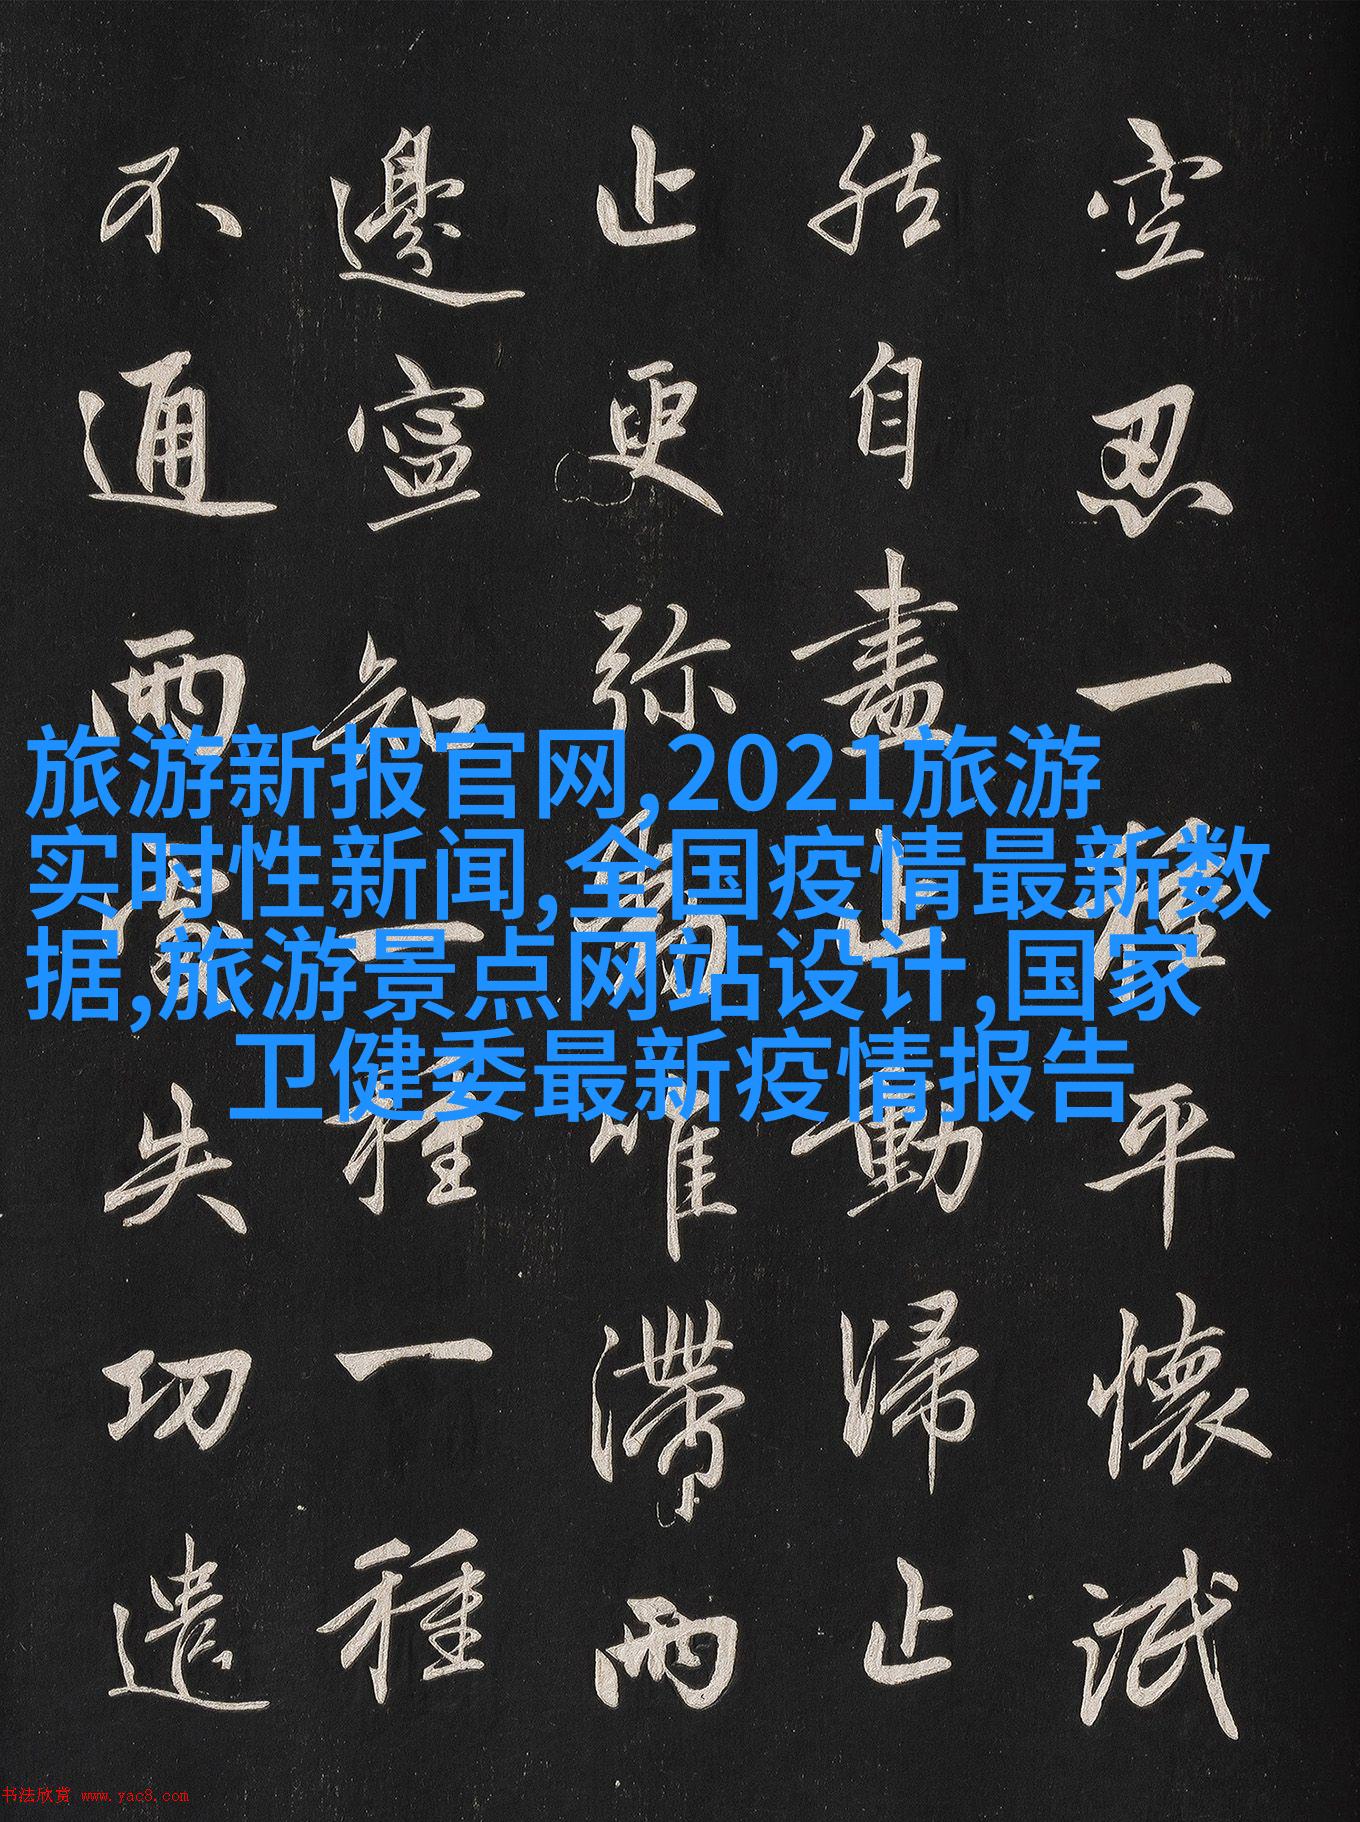 空忍一種平懷泯
然自盡止動歸止
止更弥動唯滯兩
邊寧知一種一種
不通兩處失功遣
旅游新报官网,2021旅游
实时性新闻,全国疫情最新数
据,旅游景点网站设计,国家
卫健委最新疫情报告
书法欣赏 www.yac8.com